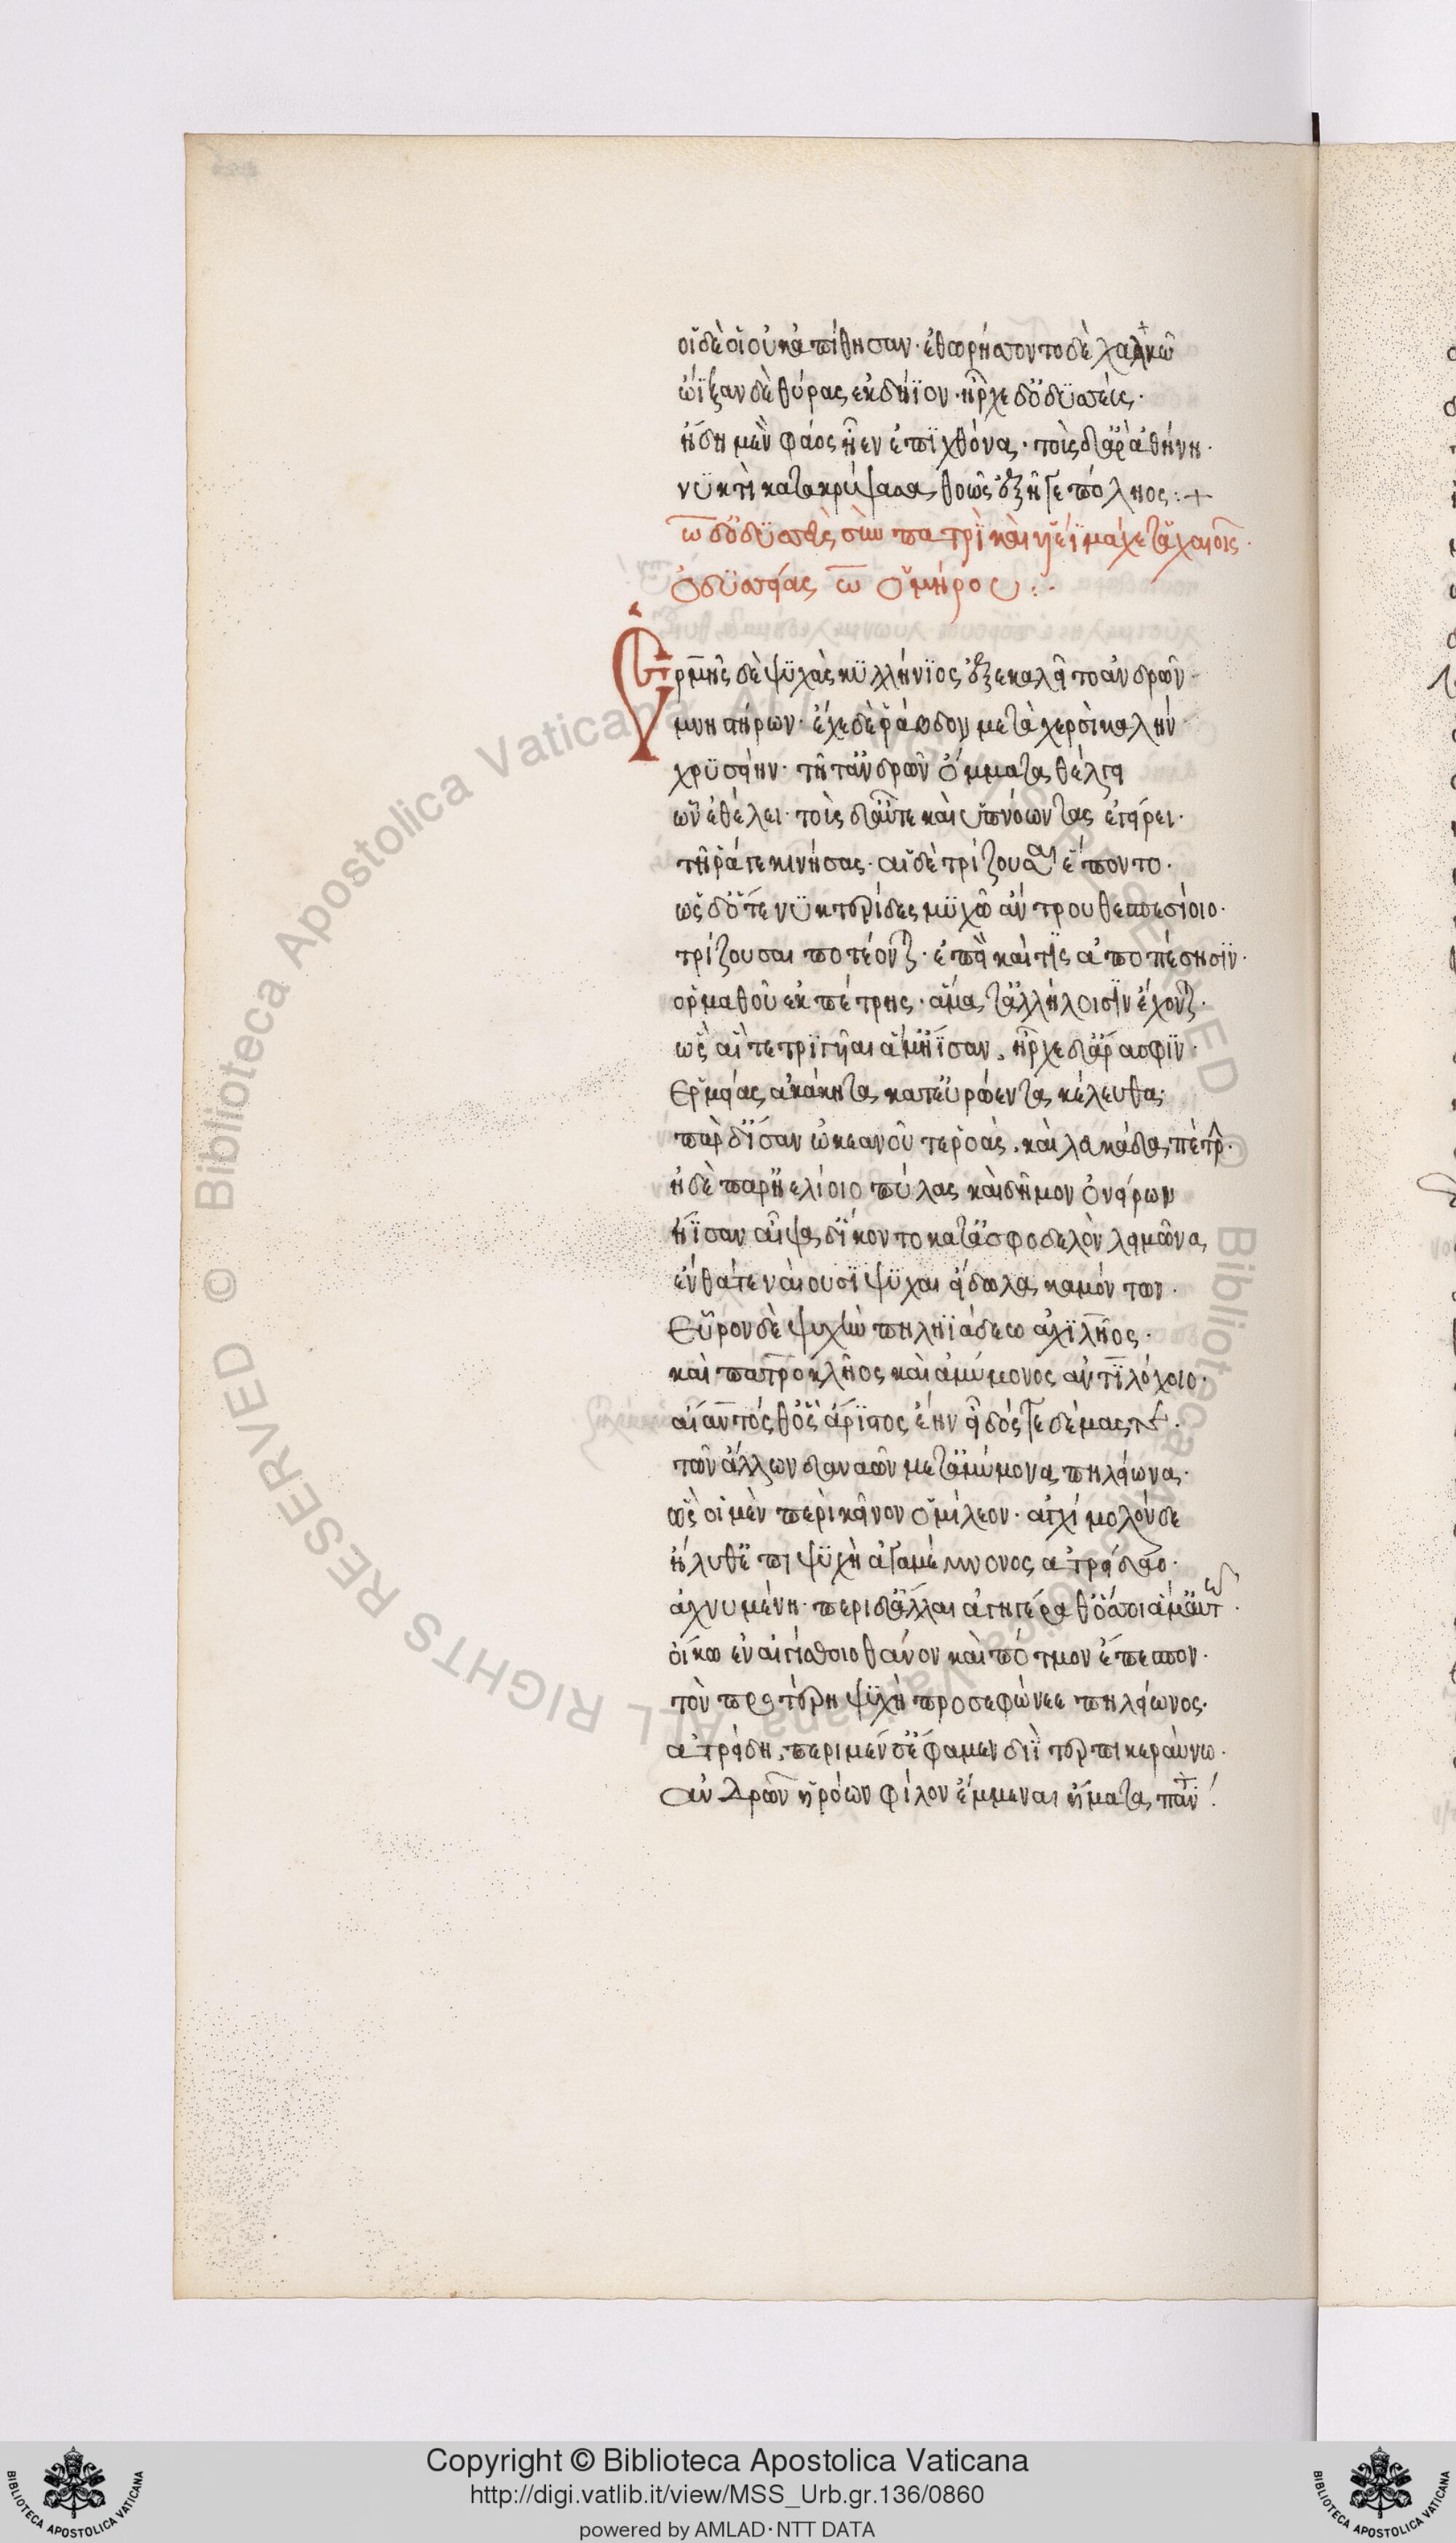 οἱ δέ οἱ οὐκ ἀπίθησαν· ἐθωρήσσοντο δὲ χαλκῶ
ὤϊξαν δὲ θύρας ἐκ δ' ἤϊον· ἦρχε δ' ὀδϋσσεύς·
ἤδη μὲν φάος ἦεν ἐπὶ χθόνα· τοὺς δ' ἄρ' ἀθήνη·
νϋκτὶ κατακρύψασα θοῶς ἐξῆγε πόληος :+
ω δ' ὀδϋσσεὺς σὺν πατρὶ καὶ υἱέϊ μάχετ' ἀχαιοῖς·
ὀδϋσσείας ω ὁμήρου :·
Ἑρμῆς δὲ ψϋχὰς κϋλλήνϊος ἐξεκαλεῖτο ἀνδρῶν·
μνηστήρων· ἔχε δὲ ῥάβδον μετὰ χερσὶ καλήν·
χρϋσείην· τῆ τ' ἀνδρῶν ὄμματα θέλγει
ὧν ἐθέλει· τοὺς δ' αὖτε καὶ ὑπνώωντας ἐγείρει·
τῆ ῥ' ἄγε κινήσας· αἱ δὲ τρίζουσαι ἕποντο·
ὡς δ' ὅτε νϋκτερίδες μϋχῶ ἄντρου θεσπεσίοιο·
τρίζουσαι ποτέονται· ἐπεί καί τϊς ἀποπέσησϊν·
ὁρμαθοῦ ἐκ πέτρης· ἀνά τ' ἀλλήλοισϊν ἔχονται·
ὣς αἱ τετρϊγῦαι ἅμ' ἤϊσαν· ἦρχε δ' ἄρα σφϊν·
Ἑρμείας ἀκάκητα κατ' εὐρώεντα κέλευθα·
παρ δ' ἴσαν ὠκεανοῦ τε ῥοὰς· καὶ λευκάδα πέτρην·
ἠδὲ παρ' ἠελίοιο πύλας καὶ δῆμον ὀνείρων
ἤϊσαν αἶψα δ' ἵκοντο κατ' ἀσφοδελὸν λειμῶνα
ἔνθά τε ναίουσϊ ψϋχαὶ εἴδωλα καμόντων·
Εὗρον δὲ ψυχὴν πηληϊάδεω ἀχϊλῆος·
καὶ πατροκλῆος καὶ ἀμύμονος ἀντϊλόχοιο·
αἴαντός θ' ὃς ἄρϊστος ἔην εἶδός τε δέμας τε·
τῶν ἄλλων δαναῶν μετ' ἀμύμονα πηλείωνα·
ὣς οἱ μὲν περὶ κεῖνον ὁμίλεον· ἀγχίμολον δὲ
ἤλυθ' ἔπι ψϋχὴ ἀγαμέμνονος ἀτρείδαο·
ἀχνυμένη· περὶ δ' ἄλλαι ἀγηγέραθ' ὅσσοι ἅμ' αὐτῶ·
οἴκω ἐν αἰγίσθοιο θάνον καὶ πότμον ἐπέσπον·
τὸν προτέρη ψϋχὴ προσεφώνεε πηλείωνος·
ἀτρείδη, περὶ μέν σ' ἔφαμεν διῒ τερπικεραύνω·
ἀνδρῶν ἡρώων φίλον ἔμμεναι ἤματα πάντα
Copyright © Biblioteca Apostolica Vaticana
http://digi.vatlib.it/view/MSS_Urb.gr.136/0860
powered by AMLAD·NTT DATA